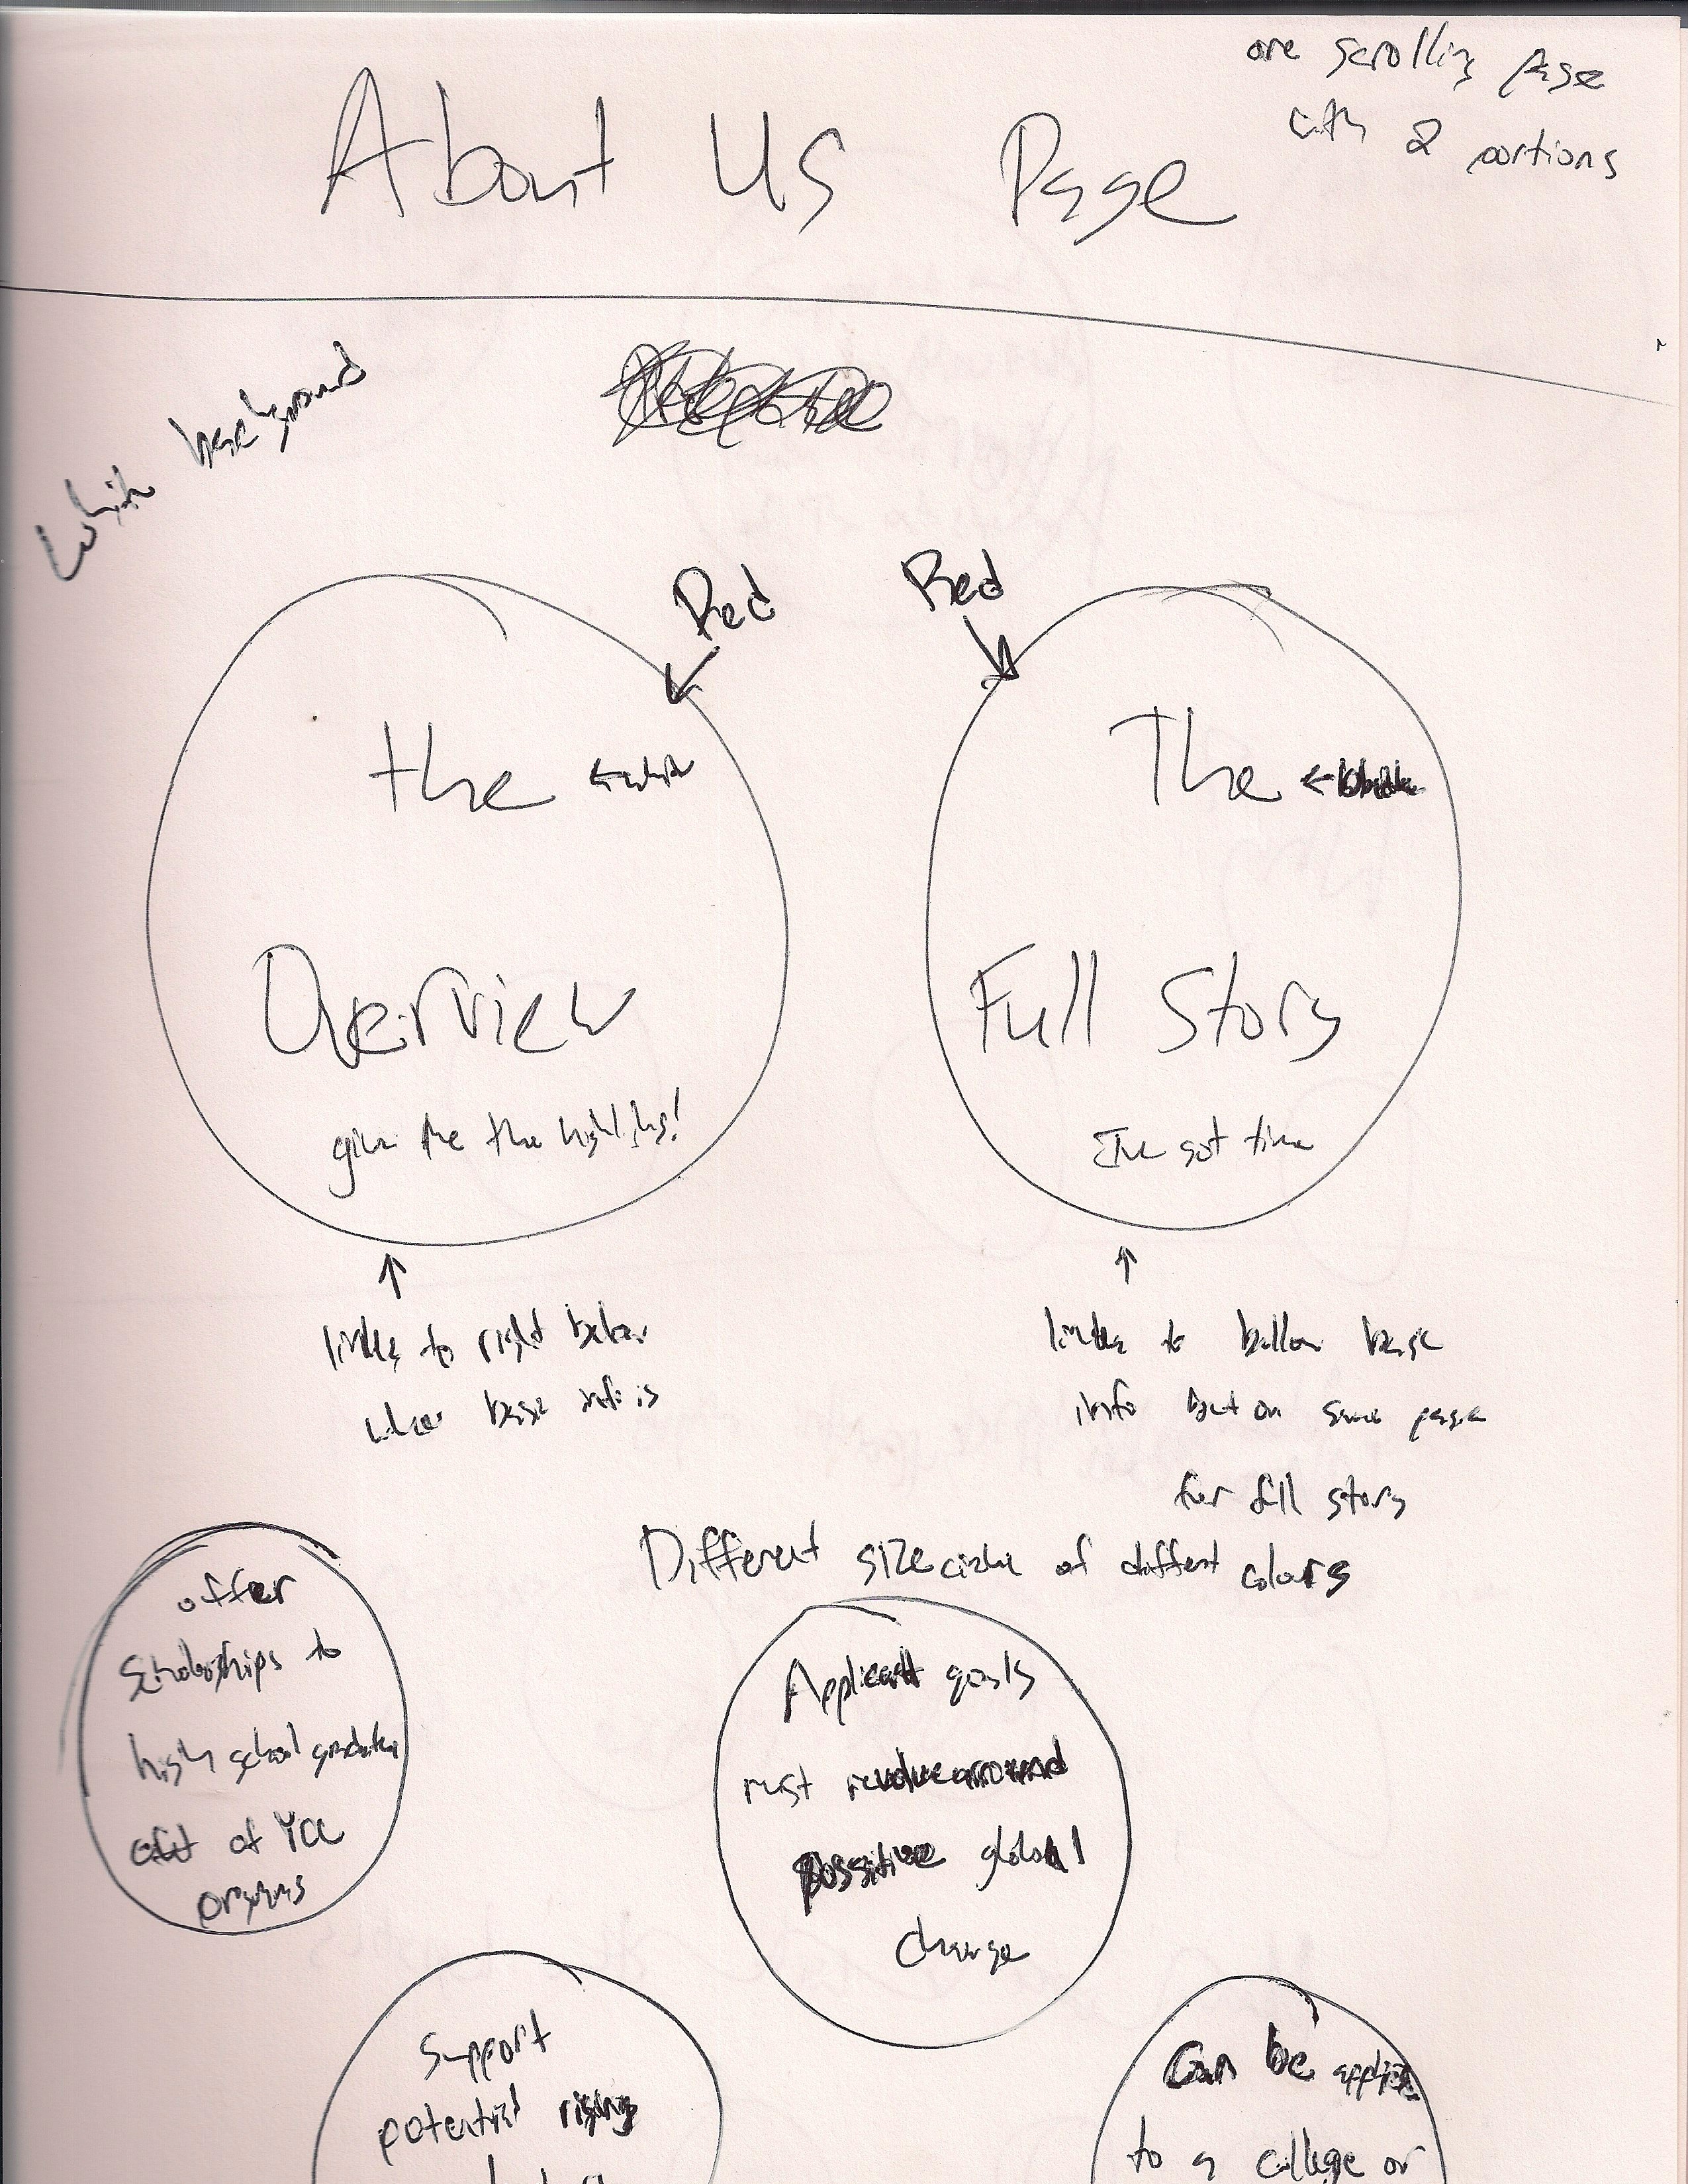 one scrolling page
with 2 portions
About Us Page
White background
Red
Red
the ← white
The ←
Overview
Full Story
give me the highlights!
I've got time
links to right below
where base info is
links to bellow base
info but on same page
for full story
Different size circles of different colours
offer
Scholarships to
high school graduates
out of YCC
programs
Applicant goals
must revolve around
possitive global
change
Support
potential rising
Can be applied
to a college or